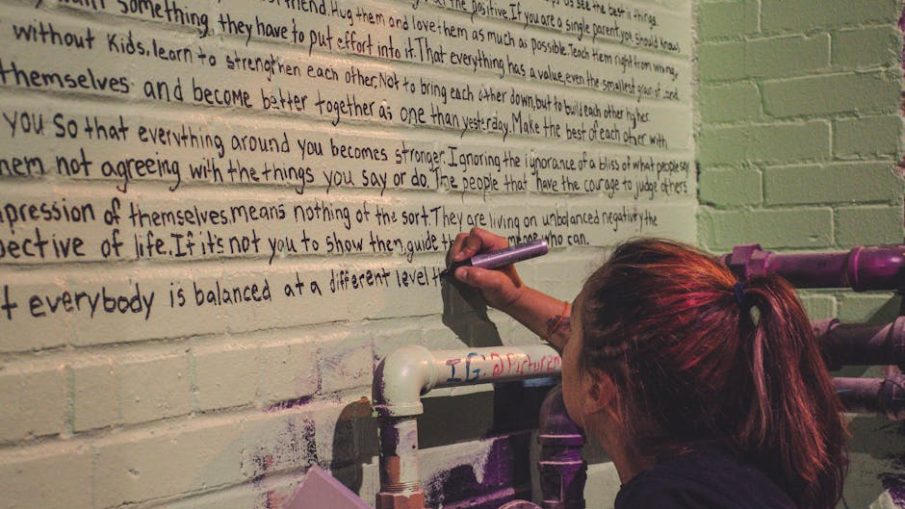 friend. Hug them and love them as much as possible. Teach them right from wrong.
something they have to put effort into it. That everything has a value, even the smallest grain of sand.
without kids, learn to strengthen each other. Not to bring each other down, but to build each other higher.
themselves and become better together as one than yesterday. Make the best of each other with
you so that everything around you becomes stronger. Ignoring the ignorance of a bliss of what people say
not agreeing with the things you say or do. The people that have the courage to judge others
pression of themselves, means nothing of the sort. They are living on unbalanced negativity the
pective of life. If it's not you to show them, guide who can.
everybody is balanced at a different level
the positive. If you are a single parent, you should know
us see the best in things.
IG: @Picture